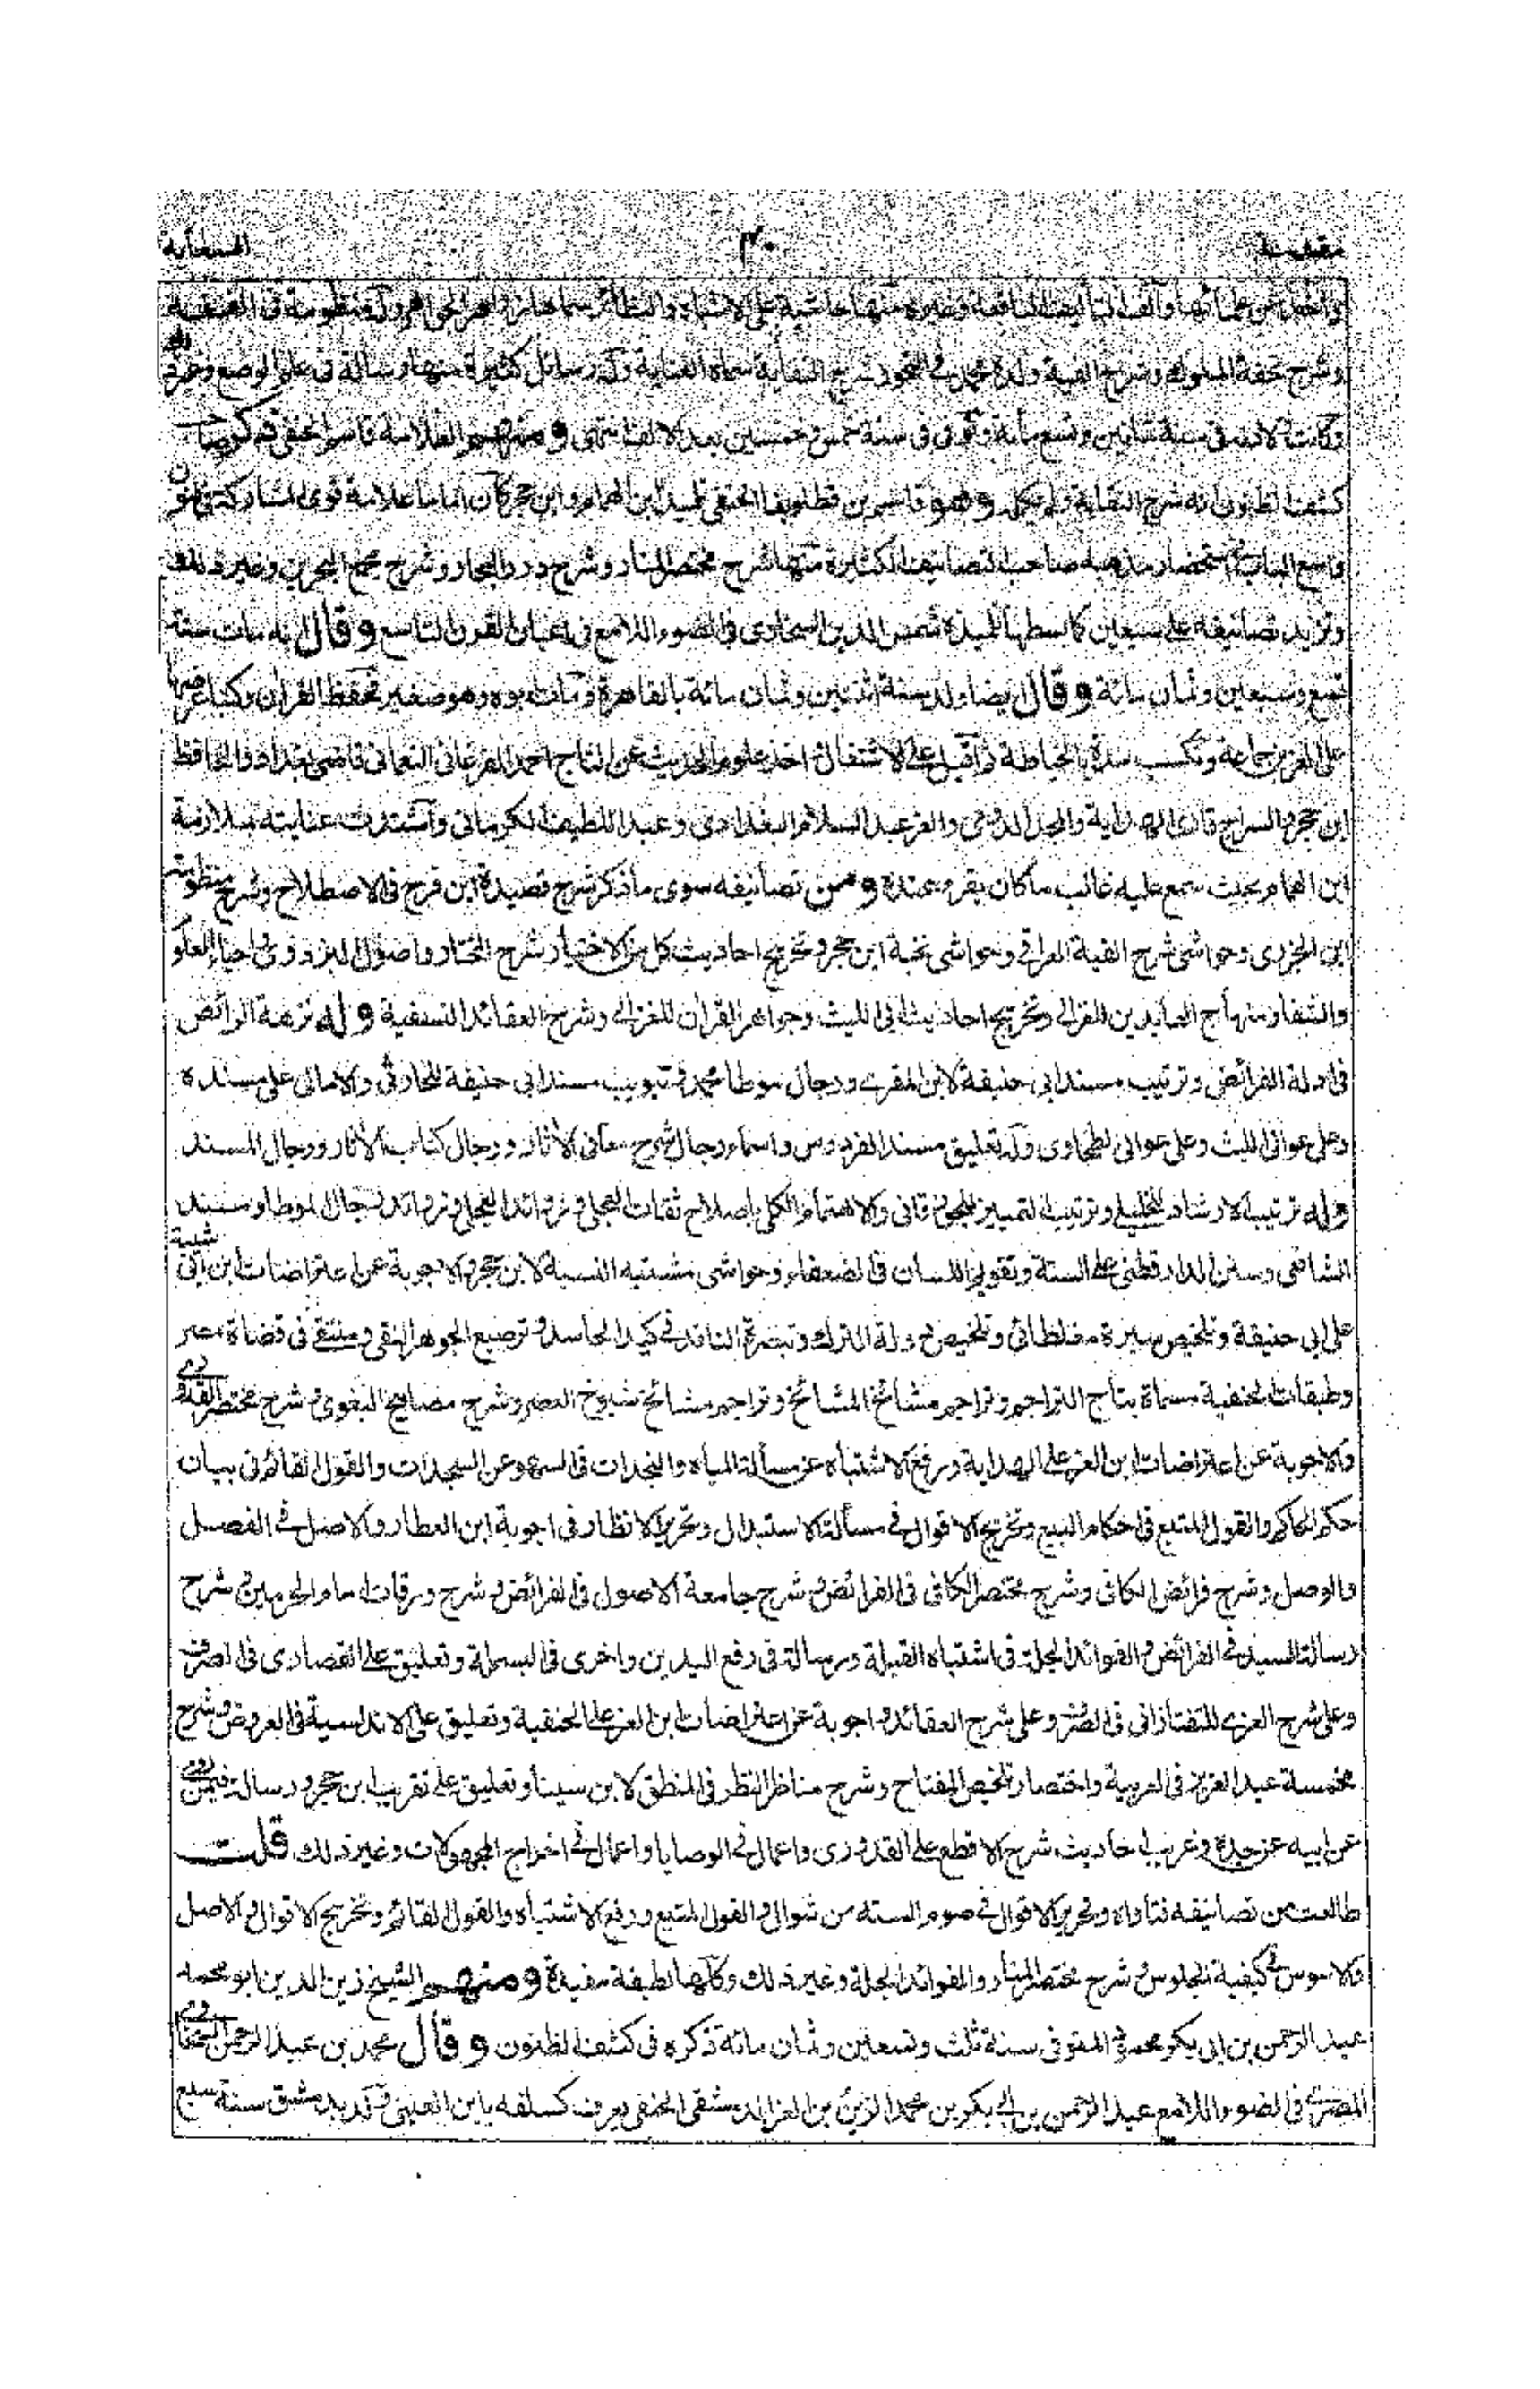 مقدمة
٣٠
السعاية
واخذ عن علمائها وألف التآليف النافعة وغيره منها حاشية على الاشباه والنظائر سماها زواهر الجواهر وله منظومة في الفقه
وشرح تحفة الملوك وشرح الفية ولده محمد في النحو وشرح النقاية سماه العناية وله رسائل كثيرة منها رسالة في علم الوضع وغير ذلك
وكانت ولادته في سنة ثمانين وتسع مائة وتوفي في سنة خمس وخمسين بعد الالف انتهى ومنهم العلامة قاسم الحنفي ذكر صاحب
كشف الظنون انه شرح النقاية ولم يكمل وهو قاسم بن قطلوبغا الحنفي تلميذ ابن الهمام وابن حجر كان اماما علامة قوي المشاركة في فنون
واسع الباع في استحضار مذهبه صاحب التصانيف الكثيرة منها شرح مختصر المنار وشرح درر البحار وشرح مجمع البحرين وغير ذلك
وتزيد تصانيفه على سبعين كما بسطها تلميذه شمس الدين السخاوي في الضوء اللامع في اعيان القرن التاسع وقال انه مات سنة
تسع وسبعين وثمان مائة وقال ايضا ولد سنة اثنتين وثمان مائة بالقاهرة ومات ابوه وهو صغير فحفظ القران وكتبا عرضها
على العز بن جماعة وتكسب مدة بالخياطة ثم اقبل على الاشتغال واخذ علوم الحديث عن التاج احمد الفرغاني النعماني قاضي بغداد والحافظ
ابن حجر والسراج قارئ الهداية والمجد الرومي والعز عبد السلام البغدادي وعبد اللطيف الكرماني واشتدت عنايته بملازمة
ابن الهمام بحيث سمع عليه غالب ما كان يقرء عنده ومن تصانيفه سوى ما ذكر شرح قصيدة ابن فرح في الاصطلاح وشرح منظومة
ابن الجزري وحواشي شرح الفية العراقي وحواشي نخبة ابن حجر وتخريج احاديث كل من الاختيار شرح المختار واصول البزدوي واحياء العلوم
والشفا ومنهاج العابدين للغزالي وتخريج احاديث ابي الليث وجواهر القران للغزالي وشرح العقائد النسفية وله نزهة الرائض
في ادلة الفرائض وترتيب مسند ابي حنيفة لابن المقرى ورجال موطا محمد وتبويب مسند ابي حنيفة للحارثي والامالي على مسنده
وعلى عوالي الليث وعلى عوالي الطحاوي وله تعليق مسند الفردوس واسماء رجال شرح معاني الاثار ورجال كتاب الاثار ورجال المسند
وله ترتيب الارشاد للخليلي وترتيب التمييز للجوزقاني والاهتمام الكلي باصلاح ثقات العجلي وزوائد العجلي وزوائد رجال الموطا ومسند
الشافعي وسنن الدارقطني على الستة وتقويم اللسان في الضعفاء وحواشي مشتبه النسبة لابن حجر والاجوبة عن اعتراضات ابن ابي شيبة
على ابي حنيفة وتلخيص سيرة مغلطائي وتلخيص دولة الترك وتبصرة الناقد في كيد الحاسد وترصيع الجوهر النقي ومنتقى في قضاة مصر
وطبقات الحنفية مسماة بتاج التراجم وتراجم مشائخ المشائخ وتراجم مشائخ شيوخ العصر وشرح مصابيح البغوي وشرح مختصر القدوري
والاجوبة عن اعتراضات ابن العز على الهداية ورفع الاشتباه عن مسألة المياه والنجدات في السهو عن السجدات والقول القائم في بيان
حكم الحاكم والقول المتبع في احكام البيع وتخريج الاقوال في مسألة الاستبدال وتحرير الانظار في اجوبة ابن العطار والاصل في الفصل
والوصل وشرح فرائض الكافي وشرح مختصر الكافي في الفرائض وشرح جامعة الاصول في الفرائض وشرح ورقات امام الحرمين وشرح
رسالة السيد في الفرائض والفوائد الجلة في اشتباه القبلة ورسالة في رفع اليدين واخرى في البسملة وتعليق على القصارى في الصرف
وعلى شرح العزي للتفتازاني في الصرف وعلى شرح العقائد واجوبة عن اعتراضات ابن العز على الحنفية وتعليق على الاندلسية في العروض وشرح
مخمسة عبد العزيز في العربية واختصار تلخيص المفتاح وشرح مناظر النظر في المنطق لابن سينا وتعليق على تقريب ابن حجر ورسالة فيمن روى
عن ابيه عن جده وغريب احاديث شرح الاقطع على القدوري واعمال في الوصايا واعمال في اخراج المجهولات وغير ذلك قلت
طالعت من تصانيفه فتاواه وتحرير الاقوال في صوم الستة من شوال والقول المتبع ورفع الاشتباه والقول القائم وتخريج الاقوال والاصل
والاسوس في كيفية الجلوس وشرح مختصر المنار والفوائد الجلة وغير ذلك وكلها لطيفة مفيدة ومنهم الشيخ زين الدين ابو محمد
عبد الرحمن بن ابي بكر محمد المتوفى سنة ثلث وتسعين وثمان مائة ذكره في كشف الظنون وقال محمد بن عبد الرحمن السخاوي
المصري في الضوء اللامع عبد الرحمن بن ابي بكر بن محمد الزين بن العز الدمشقي الحنفي يعرف كسلفه بابن العيني ولد بدمشق سنة سبع